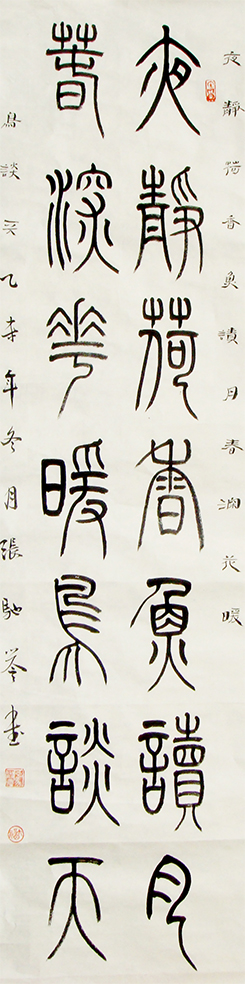 夜静荷香魚讀月
春深花暖鳥談天
夜静荷香魚讀月春深花暖
鳥談天乙未年冬月張馳岑書